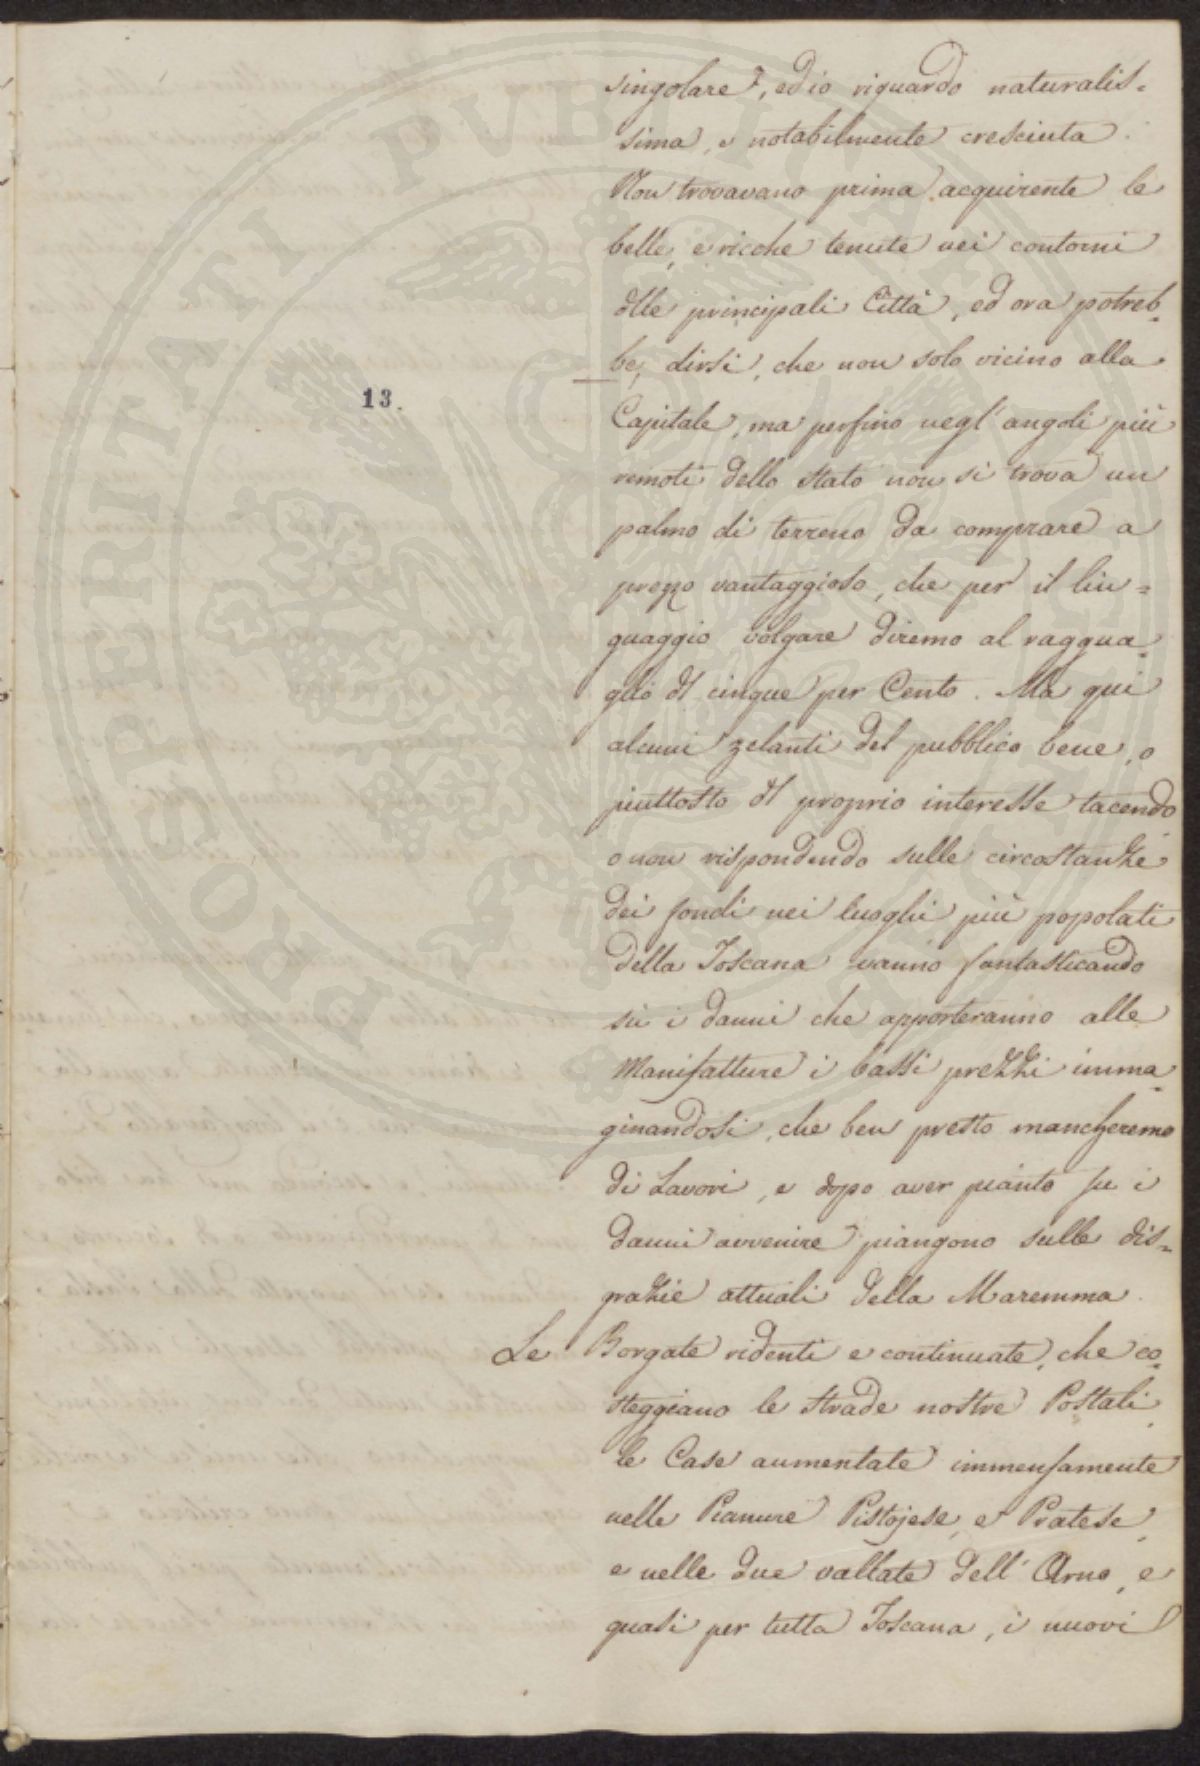 singolare, ed io riguardo naturalis-
sima, e notabilmente cresciuta.
Non trovavano prima acquirente le
belle, e ricche tenute nei contorni
dlle principali Città, ed ora potreb-
be, dirsi, che non solo vicino alla
13.
Capitale, ma perfino negl'angoli più
remoti dello Stato non si trova un
palmo di terreno da comprare a
prezzo vantaggioso, che per il lin=
guaggio volgare diremo al raggua-
glio dl cinque per Cento. Ma qui
alcuni zelanti del pubblico bene, o
piuttosto dl proprio interesse tacendo
o non rispondendo sulle circostanze
dei fondi nei luoghi più popolati
della Toscana vanno fantasticando
su i danni che apporteranno alle
Manifatture i bassi prezzi imma-
ginandosi, che ben presto mancheremo
di Lavori, e dopo aver pianto su i
danni avvenire piangono sulle dis-
grazie attuali della Maremma.
Le Borgate ridenti e continuate, che co-
steggiano le strade nostre Postali,
le Case aumentate immensamente
nelle Pianure Pistojese, e Pratese,
e nelle due vallate dell'Arno, e
quasi per tutta Toscana, i nuovi
PROSPERITATI PUBLICAE